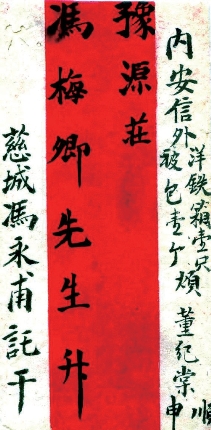 内安信外
洋鐵箱壹只
被包壹个
煩 董紀棠
順
申
豫源莊
馮梅卿先生升
慈城馮永甫託干